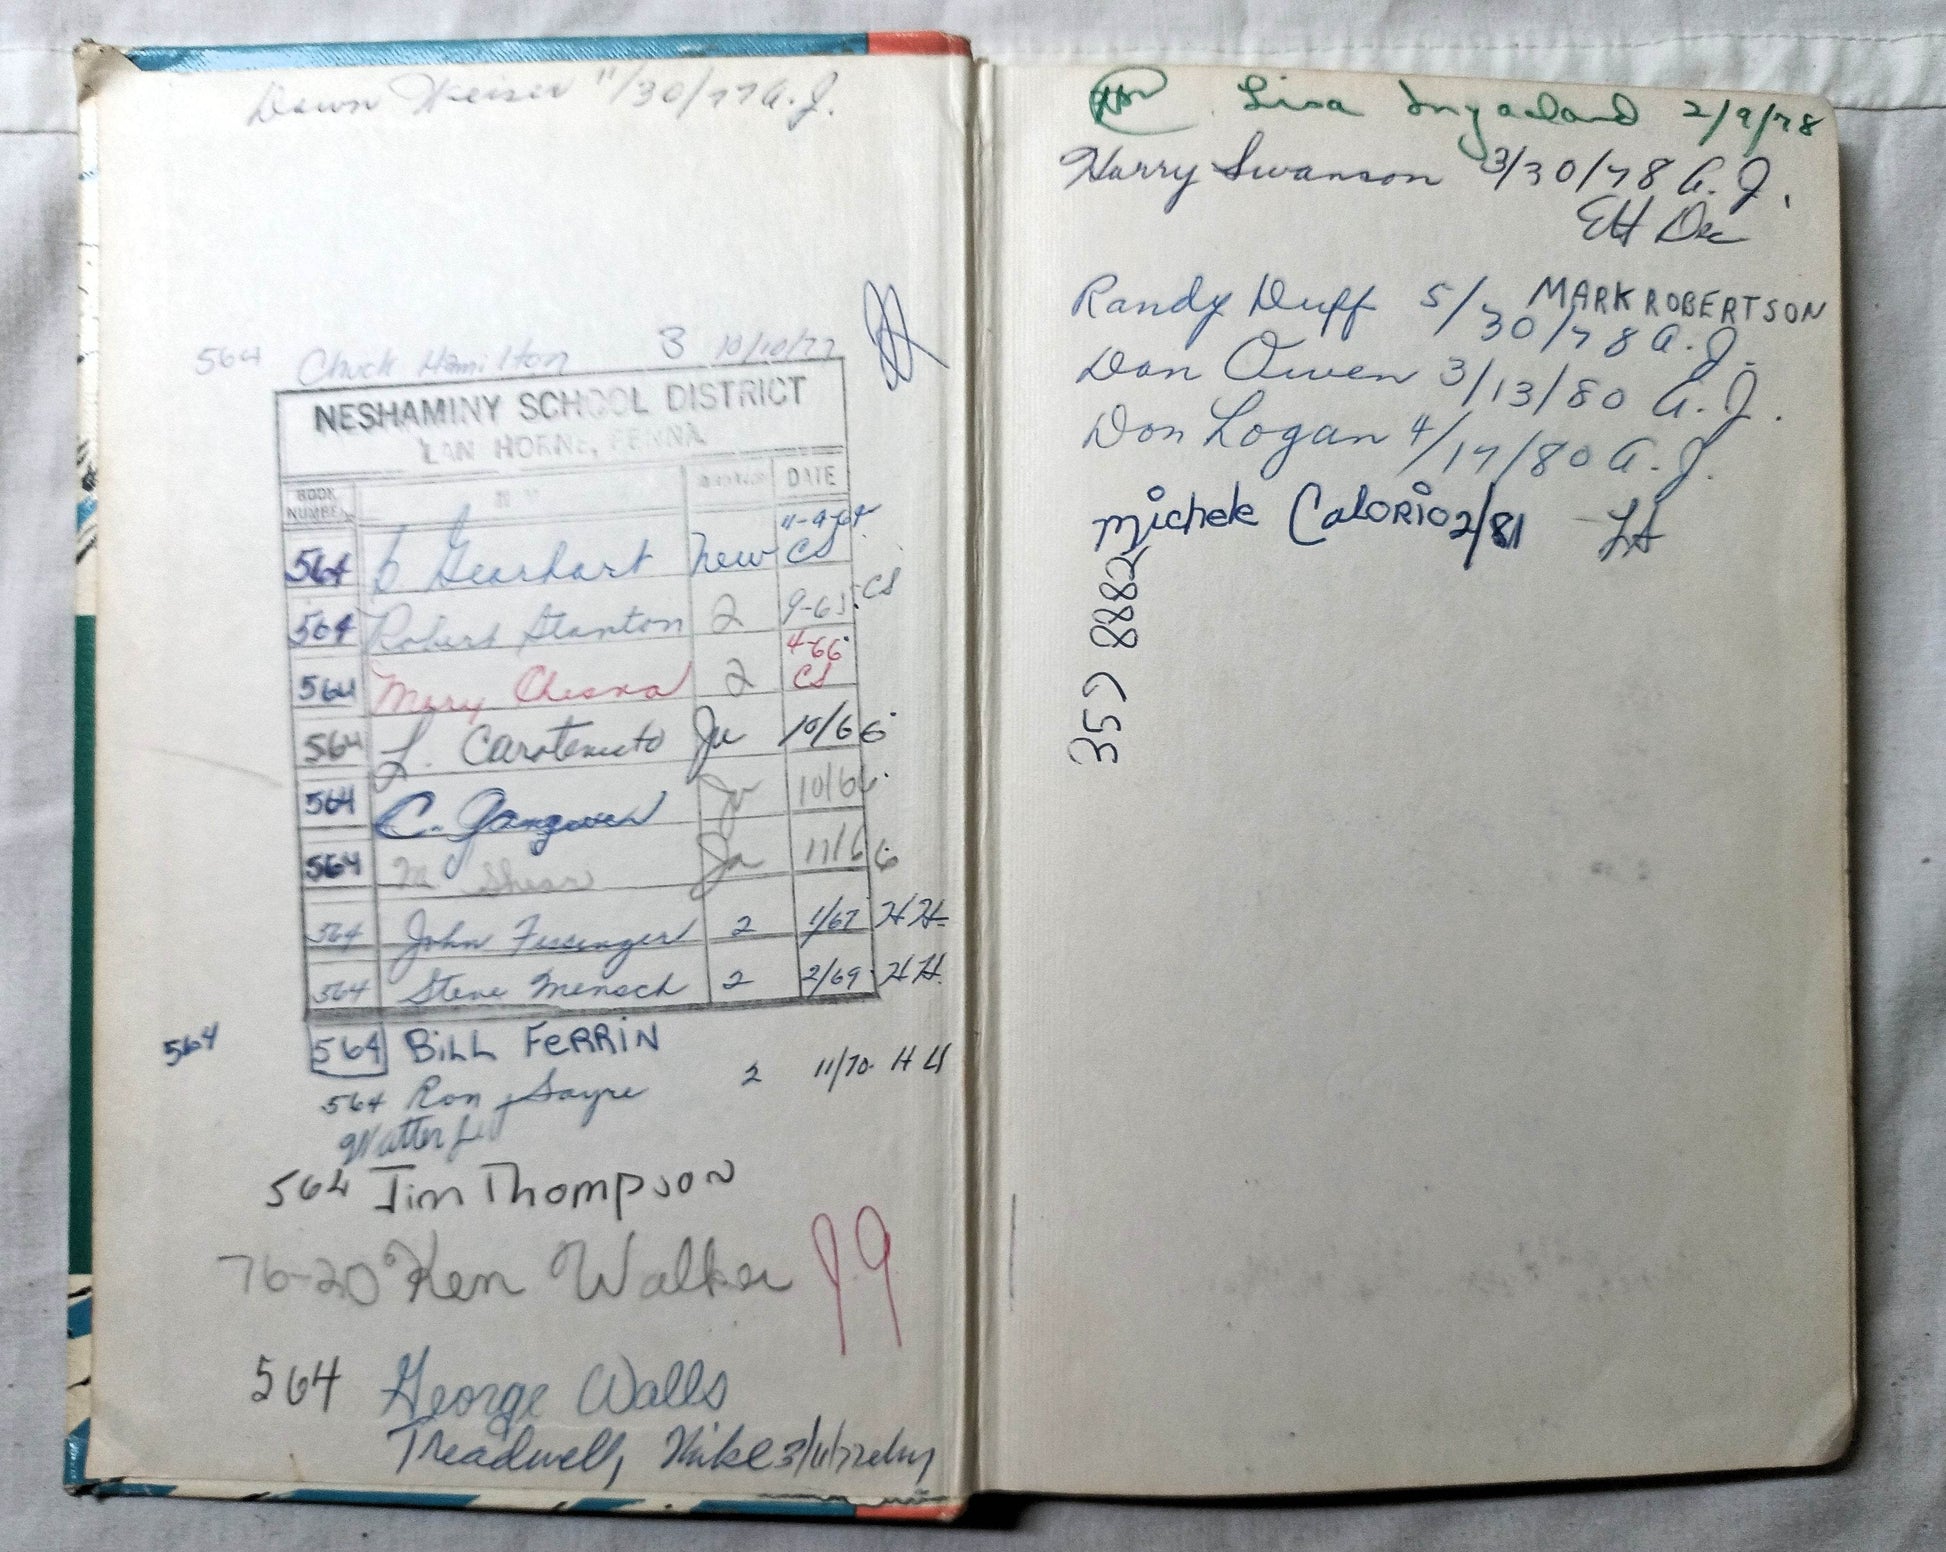 Dawn Weiser 11/30/77 A.J.
564 Chuck Hamilton 3 10/10/77
NESHAMINY SCHOOL DISTRICT
LANGHORNE, PENNA.
BOOK NUMBER DATE
564 Gearhart New 11-9-64 CS
564 Robert Stanton 2 9-65 CS
564 Mary Chesna 2 4-66 CS
564 L. Carotenuto Ju 10/66
564 C. Gangwer Jr 10/66
564 M Shear Ju 11/66
564 John Fissinger 2 1/67 HH
564 Steve Mensch 2 2/69 HH
564 564 BiLL FeRRiN
564 Ron Sayre 2 11/70 HH
564 Jim Thompson
76-20 Ken Walker
564 George Walls
Treadwell, Mike
Lisa 2/9/78
Harry Swanson 3/30/78 A.J.
Randy Duff 5/30/78 A.J. MARK ROBERTSON
Dan Owen 3/13/80 A.J.
Don Logan 4/17/80 A.J.
Michele CaloRio 2/81
357 8882